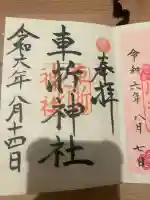 奉拝
車折神社
令和六年八月十四日
令和六年八月七日